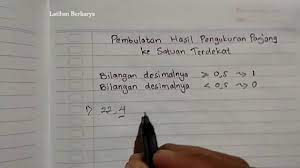 Latihan Berkarya
Pembulatan Hasil Pengukuran Panjang
ke Satuan Terdekat
Bilangan desimalnya ≥ 0,5 → 1
Bilangan desimalnya < 0,5 → 0
1) 22,4